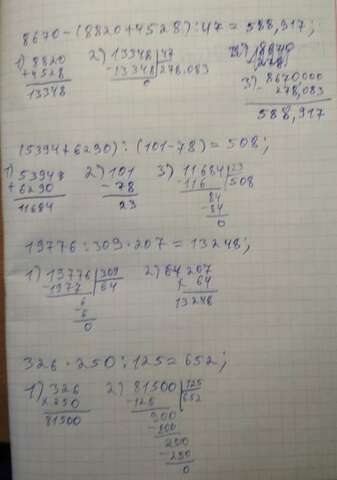 8670-(8820+4528):47=588,917;
1) 8820 2) 13348 | 47
+4528 -13348 | 278,083 3) 8670,000
13348 0 -278,083
588,917
(5394+6290):(101-78)=508;
1) 5394 2) 101 3) 11684 | 23
+6290 -78 -116 | 508
11684 23 84
-84
0
19776:309·207=13248;
1) 19776 | 309 2) 64 207
-1977 | 64 × 64
6 13248
-6
0
326·250:125=652;
1) 326 2) 81500 | 125
×250 -125 | 652
81500 900
-800
250
-250
0